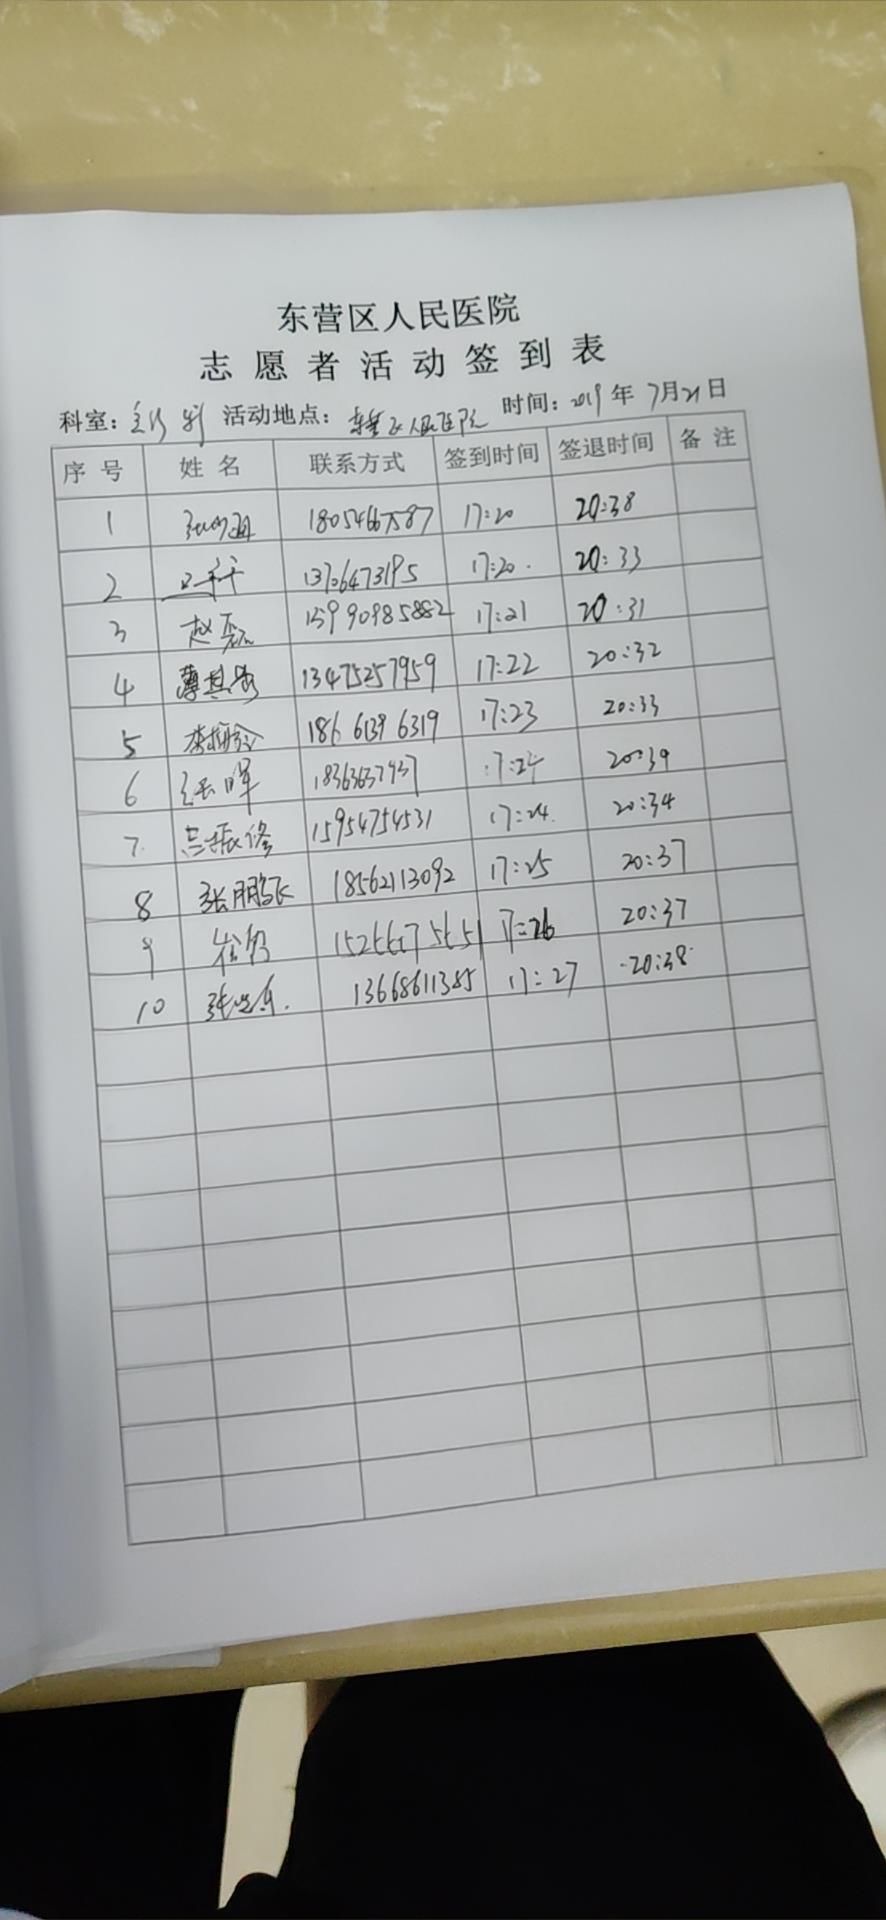 东营区人民医院
志愿者活动签到表
科室： 活动地点：东营区人民医院 时间：2019年7月21日
序号 姓名 联系方式 签到时间 签退时间 备注
1 18054667587 17:20 20:38
2 13706473195 17:20. 20:33
3 赵磊 15990985882 17:21 20:31
4 薄其 13475257959 17:22 20:32
5 186 6139 6319 17:23 20:33
6 张晖 18363637937 17:24 20:39
7. 吕振修 15954754531 17:24. 20:34
8 张鹏飞 18562113092 17:25 20:37
9 17:26 20:37
10 13668611385 17:27 20:38